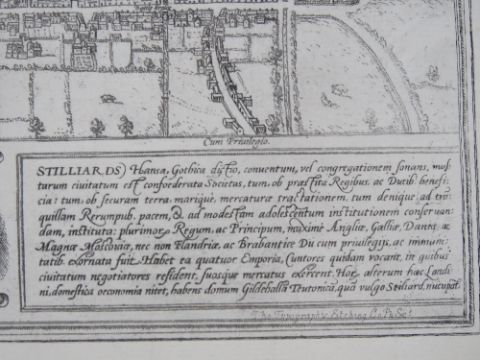 Cum Priuilegio.
STILLIARDS) Hansa, Gothica dictio, conuentum, vel congregationem sonans, mul
tarum ciuitatum est confoederata Societas, tum, ob praestita Regibus, ac Ducib. benefi
cia: tum, ob securam terra, marique, mercaturae tractationem, tum denique, ad tran
quillam Rerumpub. pacem, & ad modestam adolescentum institutionem conseruan
dam, instituta: plurimor. Regum, ac Principum, maximè Angliae, Galliae, Daniae, ac
Magnae Moscouiae, nec non Flandriae, ac Brabantiae Du cum priuilegijs, ac immuni
tatib. exornata fuit. Habet ea quatuor Emporia, Cuntores quidam vocant, in quibus
ciuitatum negotiatores resident, suosque mercatus exercent. Hoc alterum hac Londi
ni, domestica oeconomia nitet, habens domum Gildehalla Teutonica, quae vulgo Stiliard, nucupat
The Typographic Etching Co. Ph. Sc.